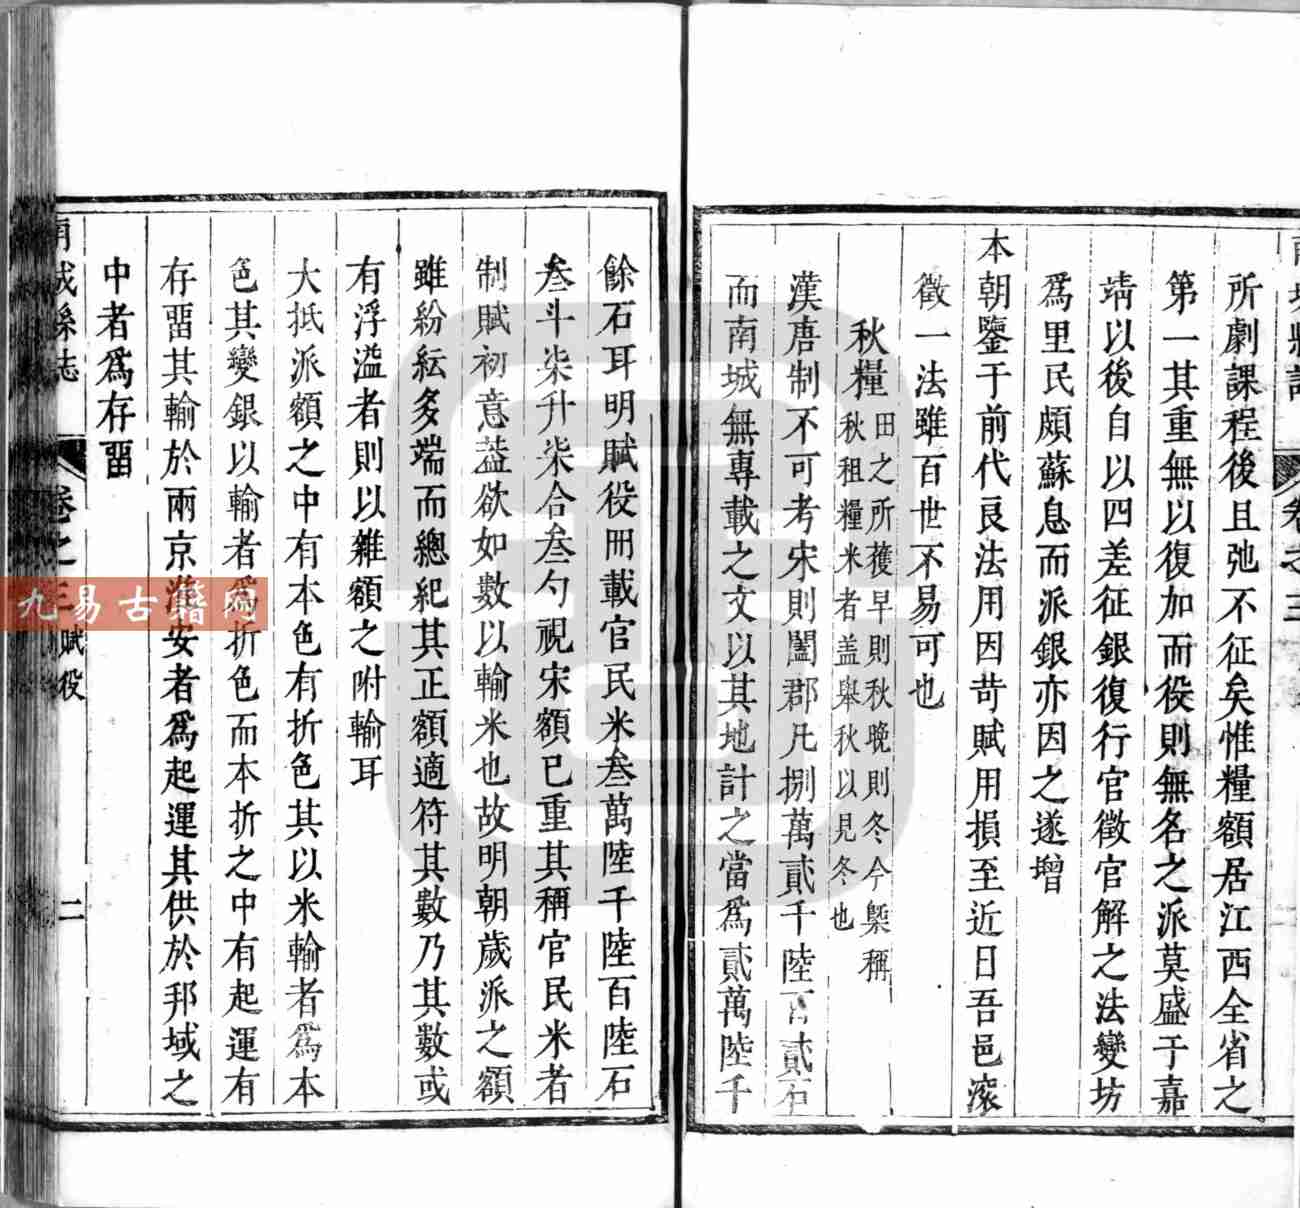 所劇課程後且弛不征矣惟糧額居江西全省之
第一其重無以復加而役則無名之派莫盛于嘉
靖以後自以四差征銀復行官徵官解之法變坊
爲里民頗蘇息而派銀亦因之遂增
本朝鑒于前代良法用因苛賦用損至近日吾邑滚
徵一法雖百世不易可也
秋糧
田之所獲早則秋晚則冬今槩稱
秋租糧米者盖舉秋以見冬也
漢唐制不可考宋則闔郡凡捌萬貳千陸百貳石
而南城無專載之文以其地計之當爲貳萬陸千
餘石耳明賦役冊載官民米叁萬陸千陸百陸石
叁斗柒升柒合叁勺視宋額已重其稱官民米者
制賦初意葢欲如數以輸米也故明朝歲派之額
雖紛紜多端而總紀其正額適符其數乃其數或
有浮溢者則以雜額之附輸耳
大抵派額之中有本色有折色其以米輸者爲本
色其變銀以輸者爲折色而本折之中有起運有
存畱其輸於兩京淮安者爲起運其供於邦域之
中者爲存畱
南城縣志
卷之三
賦役
二
九易古籍网